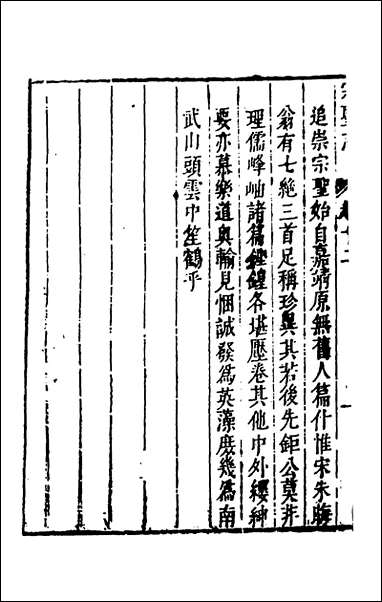 追崇宗聖始自嘉靖原無舊人篇什惟宋朱晦
翁有七絕三首足稱珍異其若後先鉅公莫非
理儒峰岫諸篇鏗鍠各堪壓卷其他中外縷紳
要亦慕樂道奧輸見悃誠發爲英藻庶幾爲南
武山頭雲中笙鶴乎